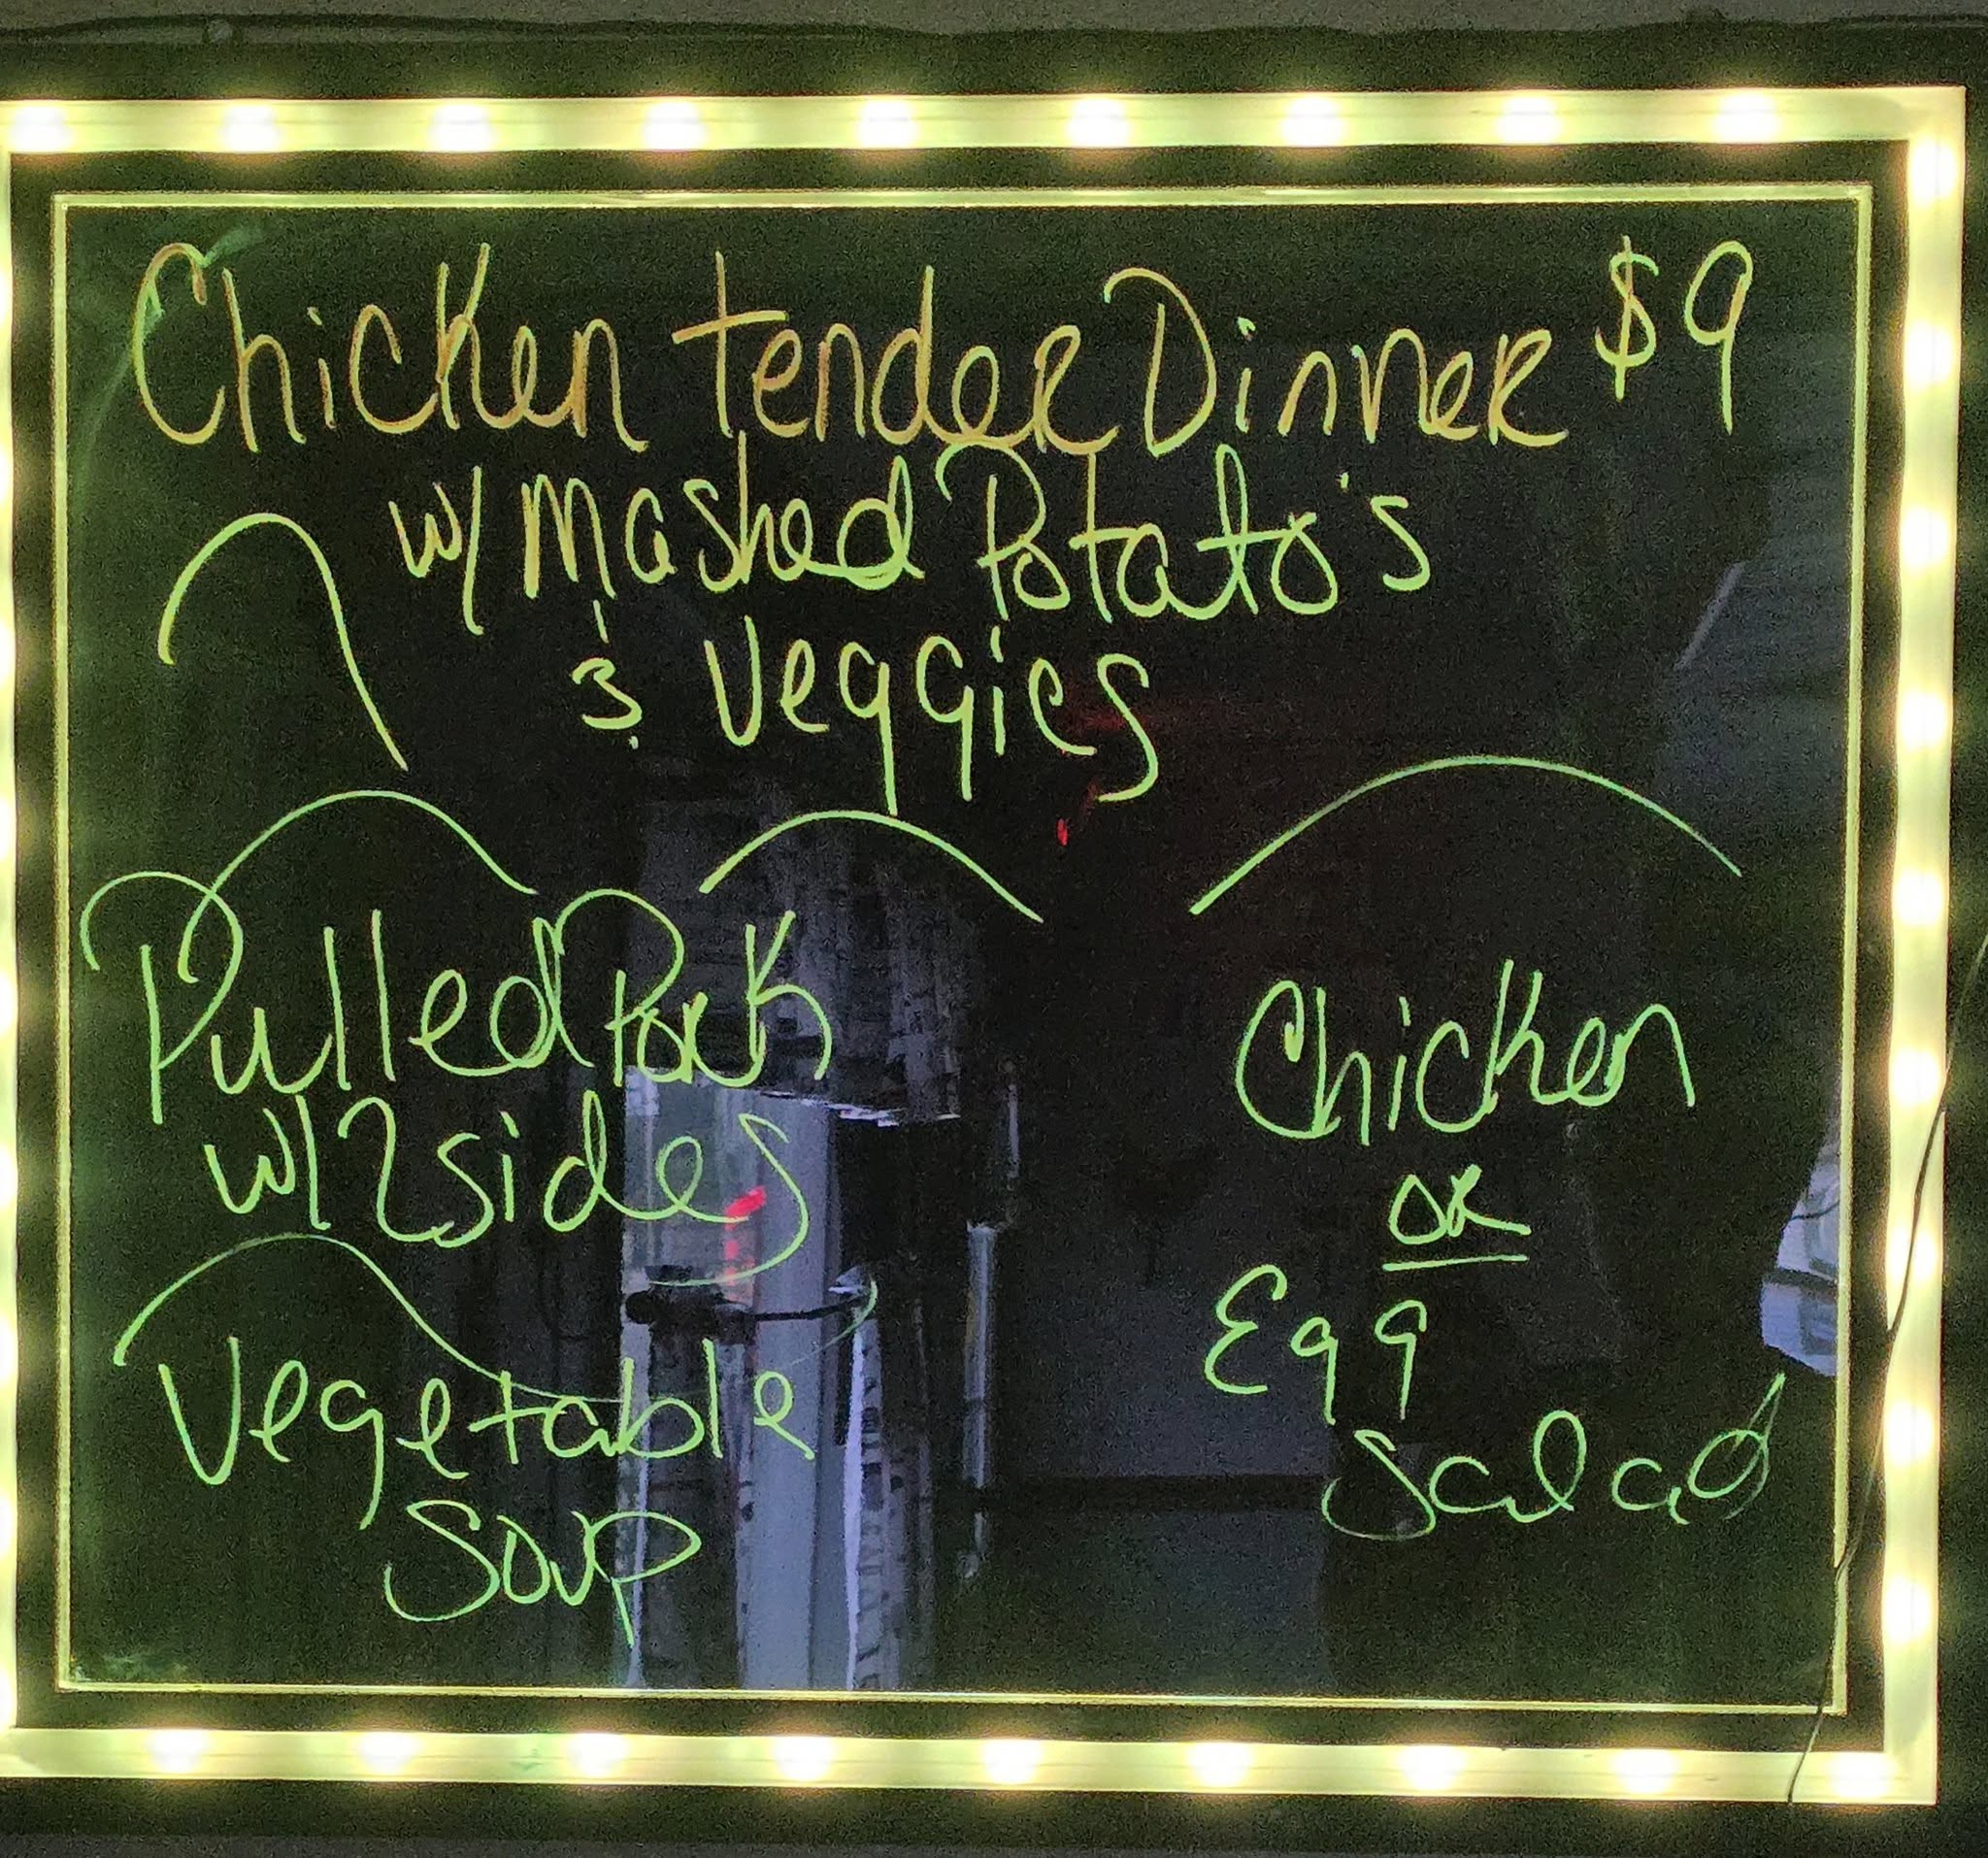 Chicken Tender Dinner $9
w/ Mashed Potato's
& Veggies
Pulled Pork
w/ 2 sides
Vegetable
Soup
Chicken
OR
Egg
Salad